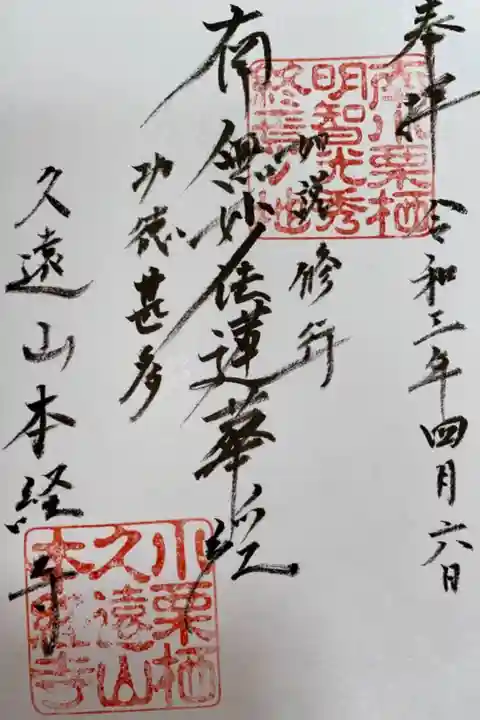 奉拝 令和三年四月六日
小栗栖
明智光秀
終焉ノ地
如説修行
南無妙法蓮華経
功徳甚多
久遠山本経寺
小栗栖
久遠山
本經寺